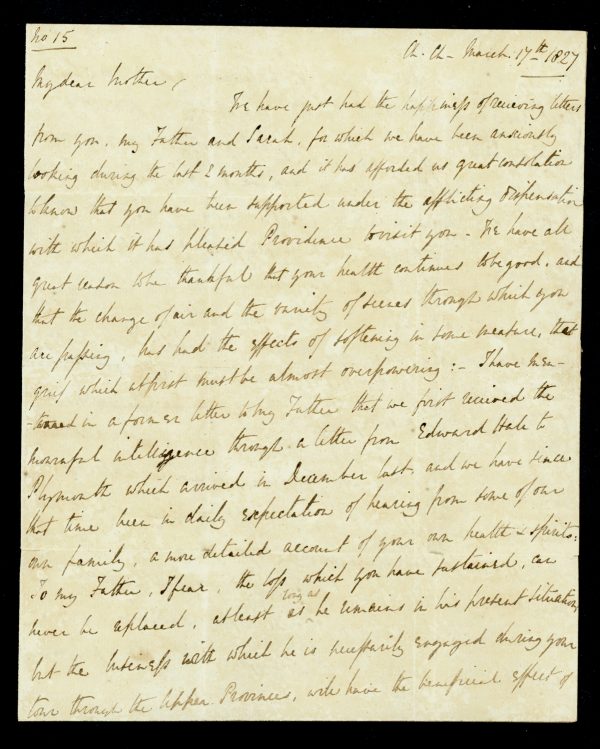 No 15
Ch. Ch - March 17th 1827
My dear Mother,
We have just had the happiness of receiving letters
from you, my Father and Sarah, for which we have been anxiously
looking during the last 2 months, and it has afforded us great consolation
to know that you have been supported under the afflicting dispensation
with which it has pleased Providence to visit you - We have all
great reason to be thankful that your health continues to be good, and
that the change of air and the variety of scenes through which you
are passing, has had the effects of softening in some measure, that
grief which at first must be almost overpowering :- I have men-
-tioned in a former letter to my Father that we first received the
mournful intelligence through a letter from Edward Hale to
Plymouth which arrived in December last, and we have since
that time been in daily expectation of hearing from some of our
own family, a more detailed account of your own health & spirits:
To my Father, I fear, the loss which you have sustained, can
never be replaced, at least as long as he remains in his present situation,
but the business with which he is necessarily engaged during your
tour through the Upper Provinces, will have the beneficial effect of